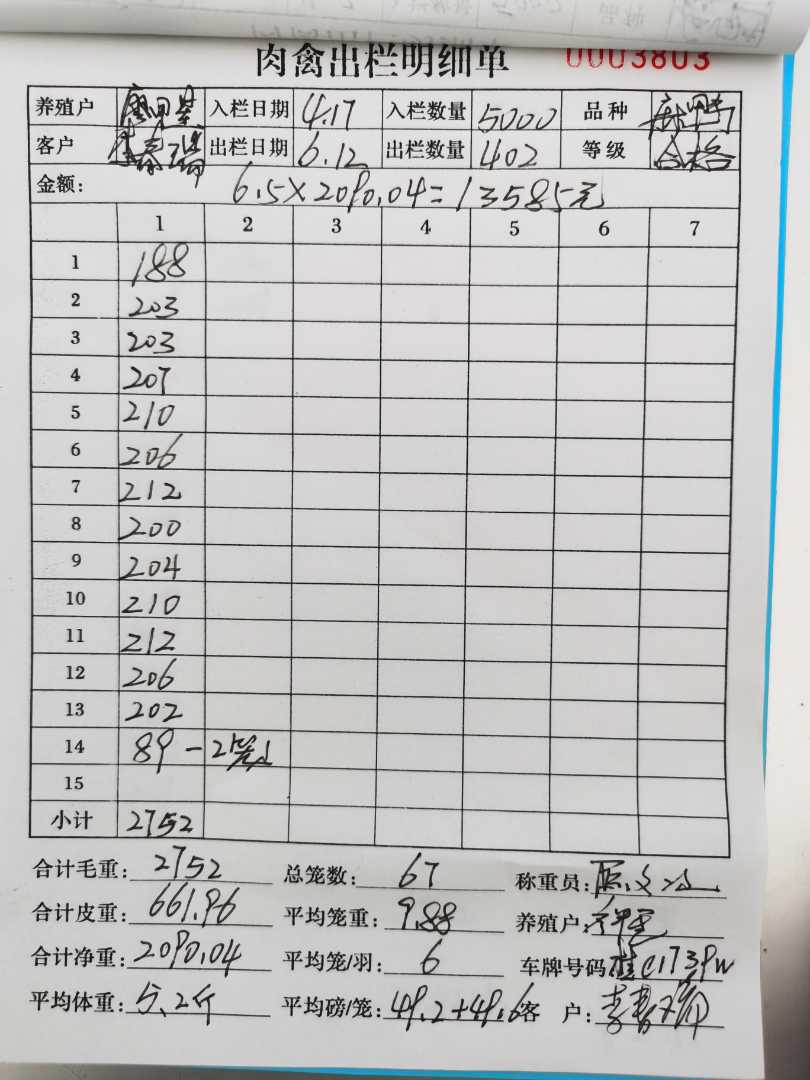 肉禽出栏明细单 0003803
养殖户 入栏日期 4.17 入栏数量 5000 品种
客户 李春瑞 出栏日期 6.12 出栏数量 402 等级 合格
金额: 6.5×2090.04=13585元
1 2 3 4 5 6 7
1 188
2 203
3 203
4 207
5 210
6 206
7 212
8 200
9 204
10 210
11 212
12 206
13 202
14 89-2笼
15
小计 2752
合计毛重: 2752 总笼数: 67 称重员:
合计皮重: 661.96 平均笼重: 9.88 养殖户:
合计净重: 2090.04 平均笼/羽: 6 车牌号码: 桂C173PW
平均体重: 5.2斤 平均磅/笼: 49.2+49.6 客 户: